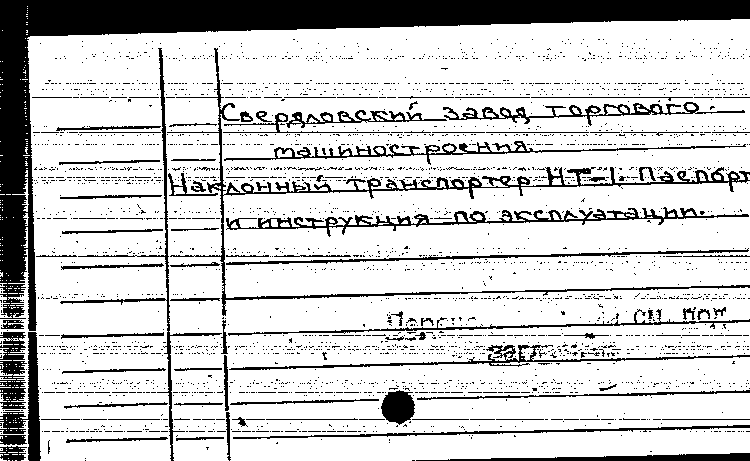 Свердловский завод торгового
машиностроения.
Наклонный транспортер НТ-1. Паспорт
и инструкция по эксплуатации.
см. под